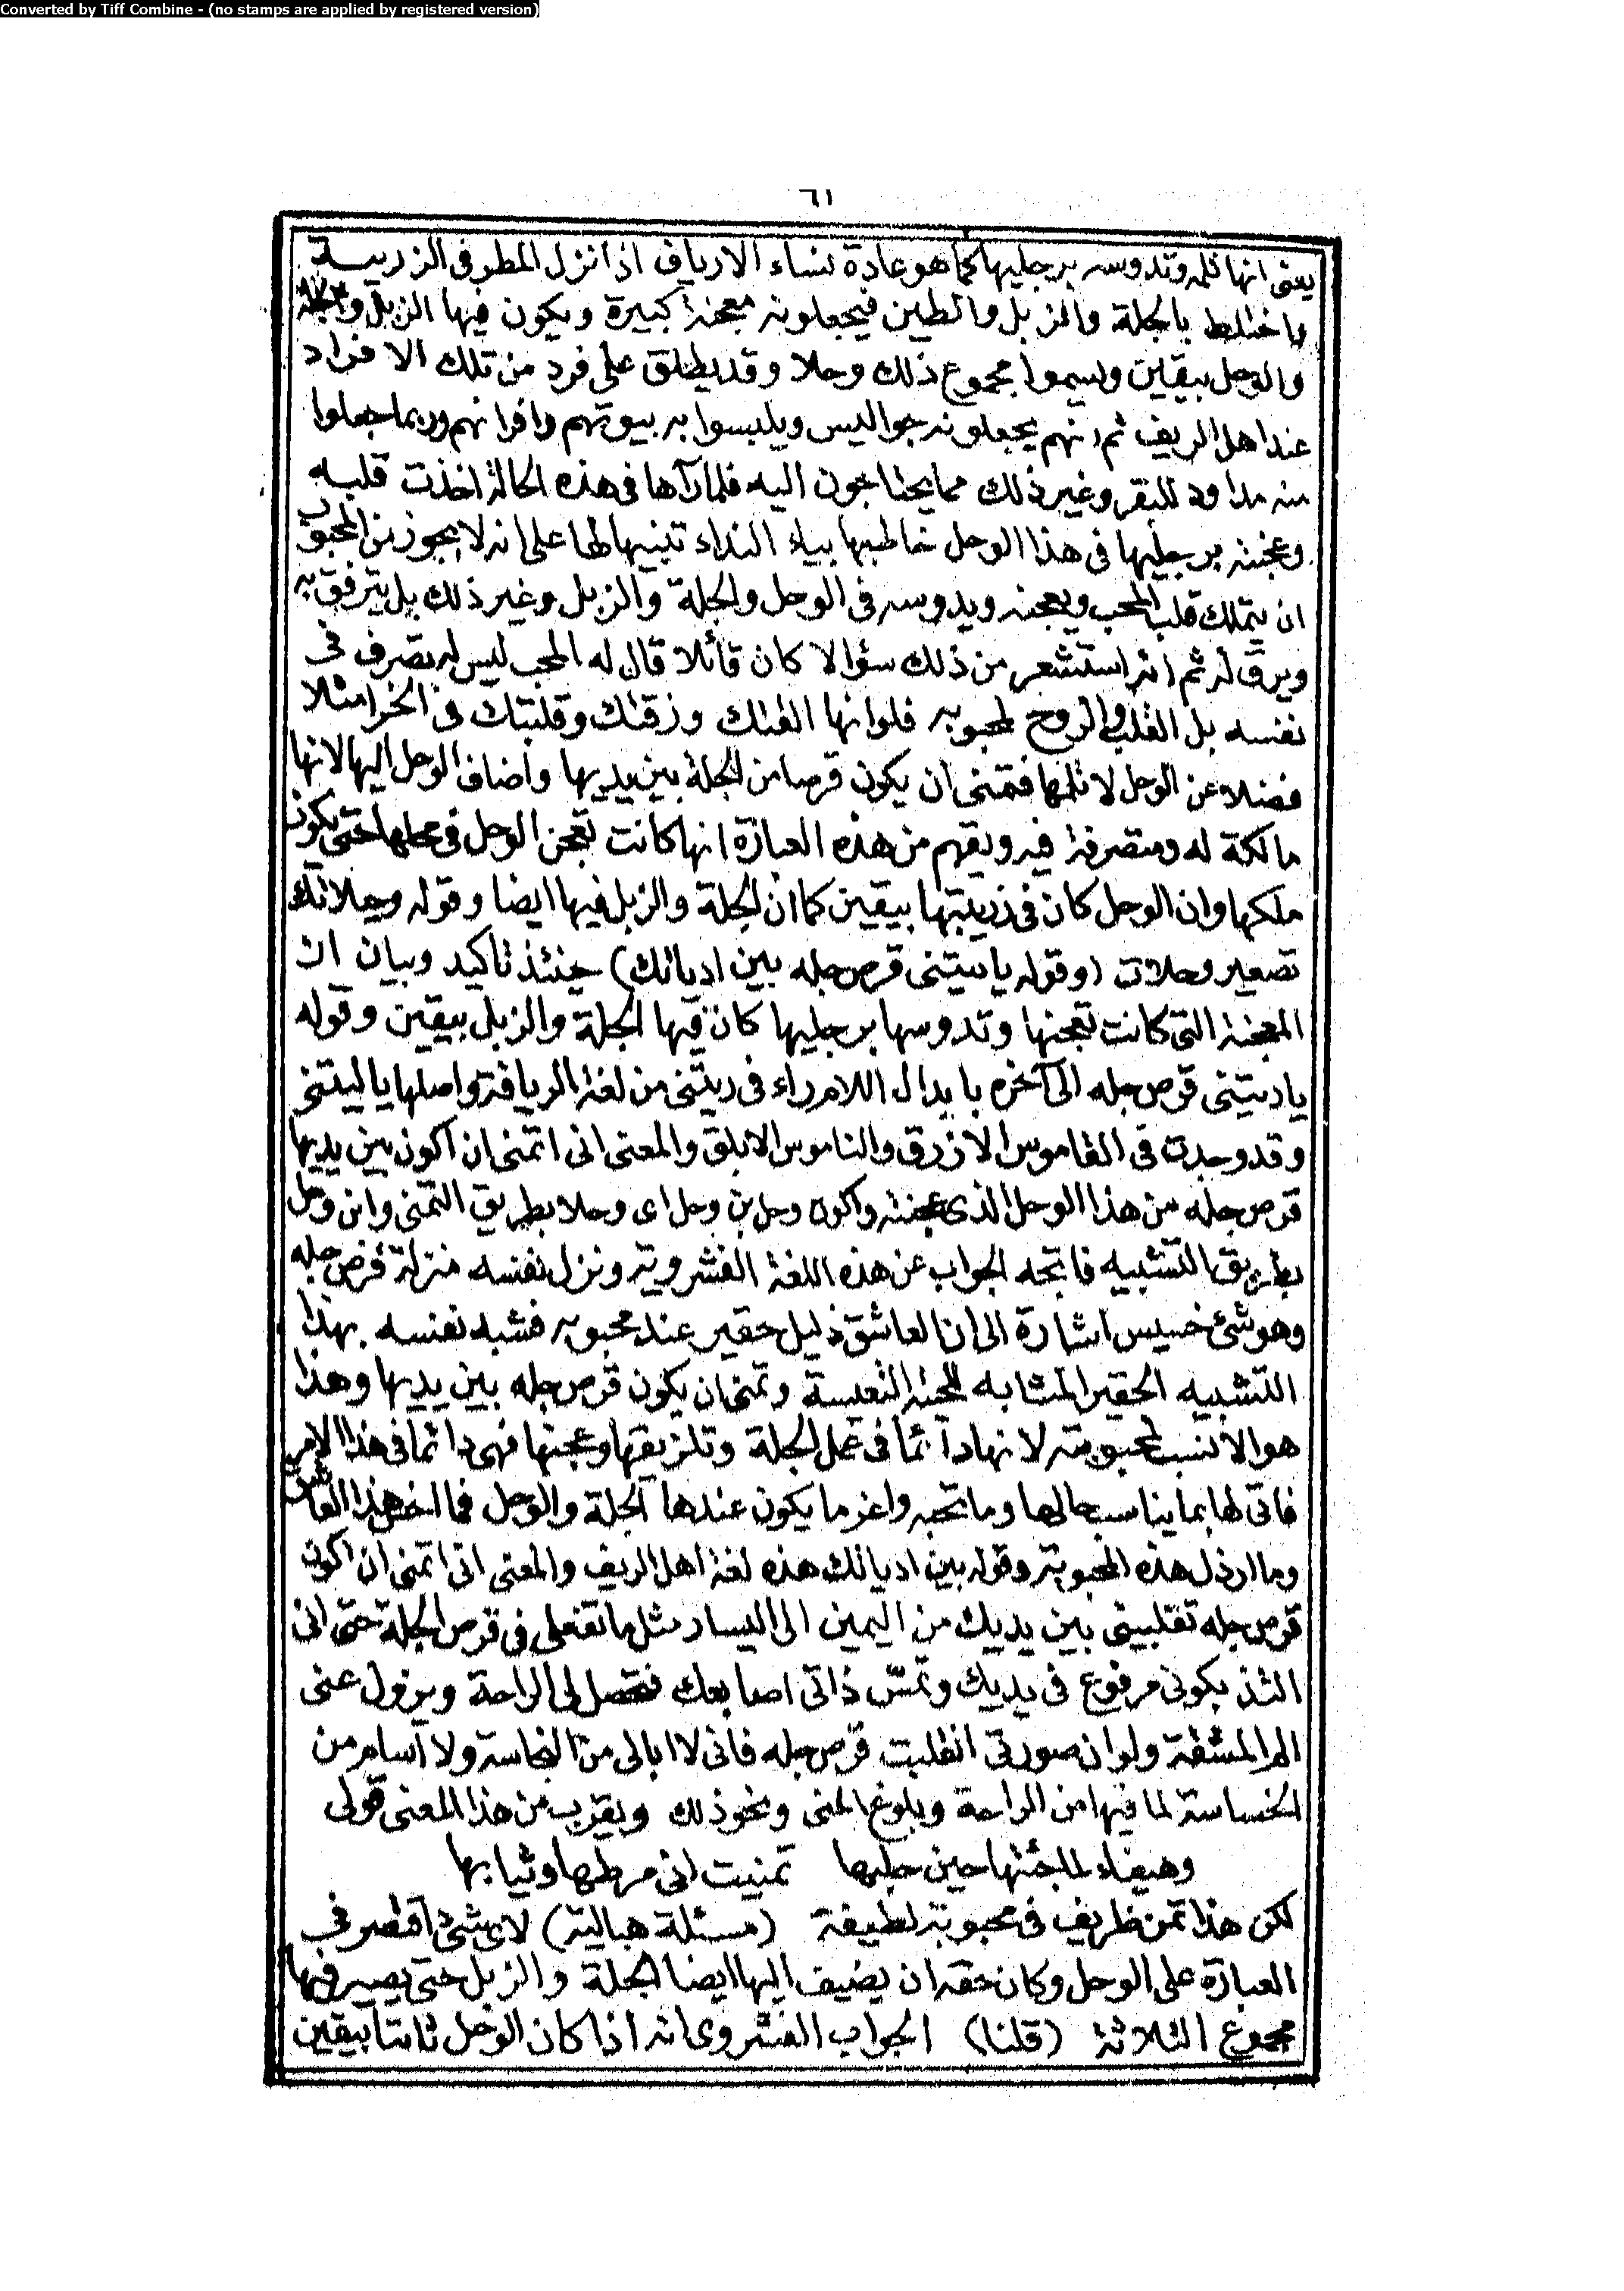 Converted by Tiff Combine - (no stamps are applied by registered version)
٦١
يعنى انها تلمه وتدوسه برجليها كما هو عادة نساء الارياف اذا نزل المطر فى الزريبة
واختلط بالجلة والزبل والطين فيجعلونه معجنة كبيرة ويكون فيها الزبل والجلة
والوحل بيقين ويسموا مجموع ذلك وحلا وقد يطلق على فرد من تلك الافراد
عند اهل الريف ثم انهم يجعلونه جواليس ويلبسوا به بيوتهم وافرانهم وربما جعلوا
منه مداود للبقر وغير ذلك مما يحتاجون اليه فلما رآها فى هذه الحالة اخذت قلبه
وعجنته برجليها فى هذا الوحل خاطبها بياء النداء تنبيها لها على انه لا يجوز من المحبوب
ان يتملك قلب المحب ويعجنه ويدوسه فى الوحل والجلة والزبل وغير ذلك بل يترفق به
ويرق له ثم انه استشعر من ذلك سؤالا كان قائلا قال له المحب ليس له تصرف فى
نفسه بل القلب والروح لمحبوبه فلوانها القتك وزقتك وقلبتك فى الخرا مثلا
فضلا عن الوحل لا تلمها فتمنى أن يكون قرصا من الجلة بين يديها وأضاف الوحل اليها لانها
مالكة له ومتصرفة فيه ويفهم من هذه العبارة انها كانت تعجن الوحل فى محلها حتى يكون
ملكها وان الوحل كان فى زريبتها بيقين كما ان الجلة والزبل فيها ايضا وقوله وحيلاتك
تصغير وحلات (وقوله يا ريتنى قرص جله بين اديانك) حينئذ تاكيد وبيان ان
المعجنة التى كانت تعجنها وتدوسها برجليها كان فيها الجلة والزبل بيقين وقوله
يا ريتنى قرص جله الى آخره بابدال اللام راء فى ريتنى من لغة الريافة واصلها يا ليتنى
وقد وجدت فى القاموس الازرق والناموس الابلق والمعنى انى اتمنى ان اكون بين يديها
قرص جله من هذا الوحل الذى عجنته واكون وحل بن وحل اى وحلا بطريق التمنى وابن وحل
بطريق التشبيه فاتجه الجواب عن هذه اللغة الفشروية ونزل نفسه منزلة قرص جله
وهو شئ خسيس اشارة الى ان العاشق ذليل حقير عند محبوبه فشبه نفسه بهذا
التشبيه الحقير المشابه للحيته النعيسة وتمنى ان يكون قرص جله بين يديها وهذا
هو الانسب لمحبوبته لانها دائما فى عمل الجلة وتلزيقها وعجنها فهى دائما فى هذا الامر
فاتى لها بما يناسب حالها وما تحبه واعز ما يكون عندها الجلة والوحل فما اخس هذا العاشق
وما ارذل هذه المحبوبة وقوله بين اديانك هذه لغة اهل الريف والمعنى انى اتمنى ان اكون
قرص جله تقلبينى بين يديك من اليمين الى اليسار مثل ما تفعلى فى قرص الجلة حتى انى
التذ بكونى مرفوع فى يديك وتمس ذاتى اصابعك فتحصل لى الراحة ويزول عنى
الم المشقة ولو ان صورتى انقلبت قرص جله فانى لا ابالى من النجاسة ولا أسام من
الخساسة لما فيها من الراحة وبلوغ المنى ونحو ذلك ويقرب من هذا المعنى قولى
وهيفاء لما جئتها حين حليها تمنيت انى مرطها وثيابها
لكن هذا تمن ظريف فى محبوبة لطيفة (مسئلة هبالية) لاى شئ اقتصر فى
العبارة على الوحل وكان حقه ان يضيف اليها ايضا الجلة والزبل حتى يصير فيها
مجموع الثلاثة (قلنا) الجواب الفشروى انه اذا كان الوحل ثابتا بيقين